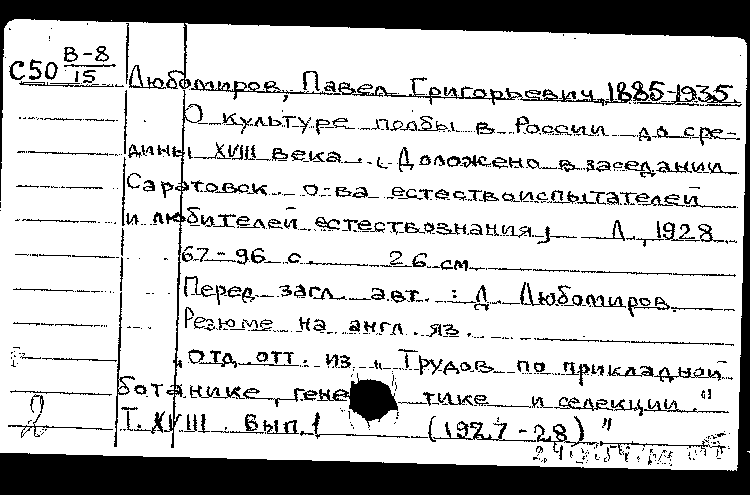 С50 В-8/15 Любомиров, Павел Григорьевич, 1885-1935.
О культуре полбы в России до сре-
дины XVIII века . . Доложено в заседании
Саратовск. о-ва естествоиспытателей
и любителей естествознания, Л., 1928
67-96 с. 26 см.
Перед загл. авт.: Д. Любомиров.
Резюме на англ. яз.
„Отд. отт. из „Трудов по прикладной
ботанике, гене тике и селекции."
2 Т. XVIII. Вып. 1 (1927-28)"